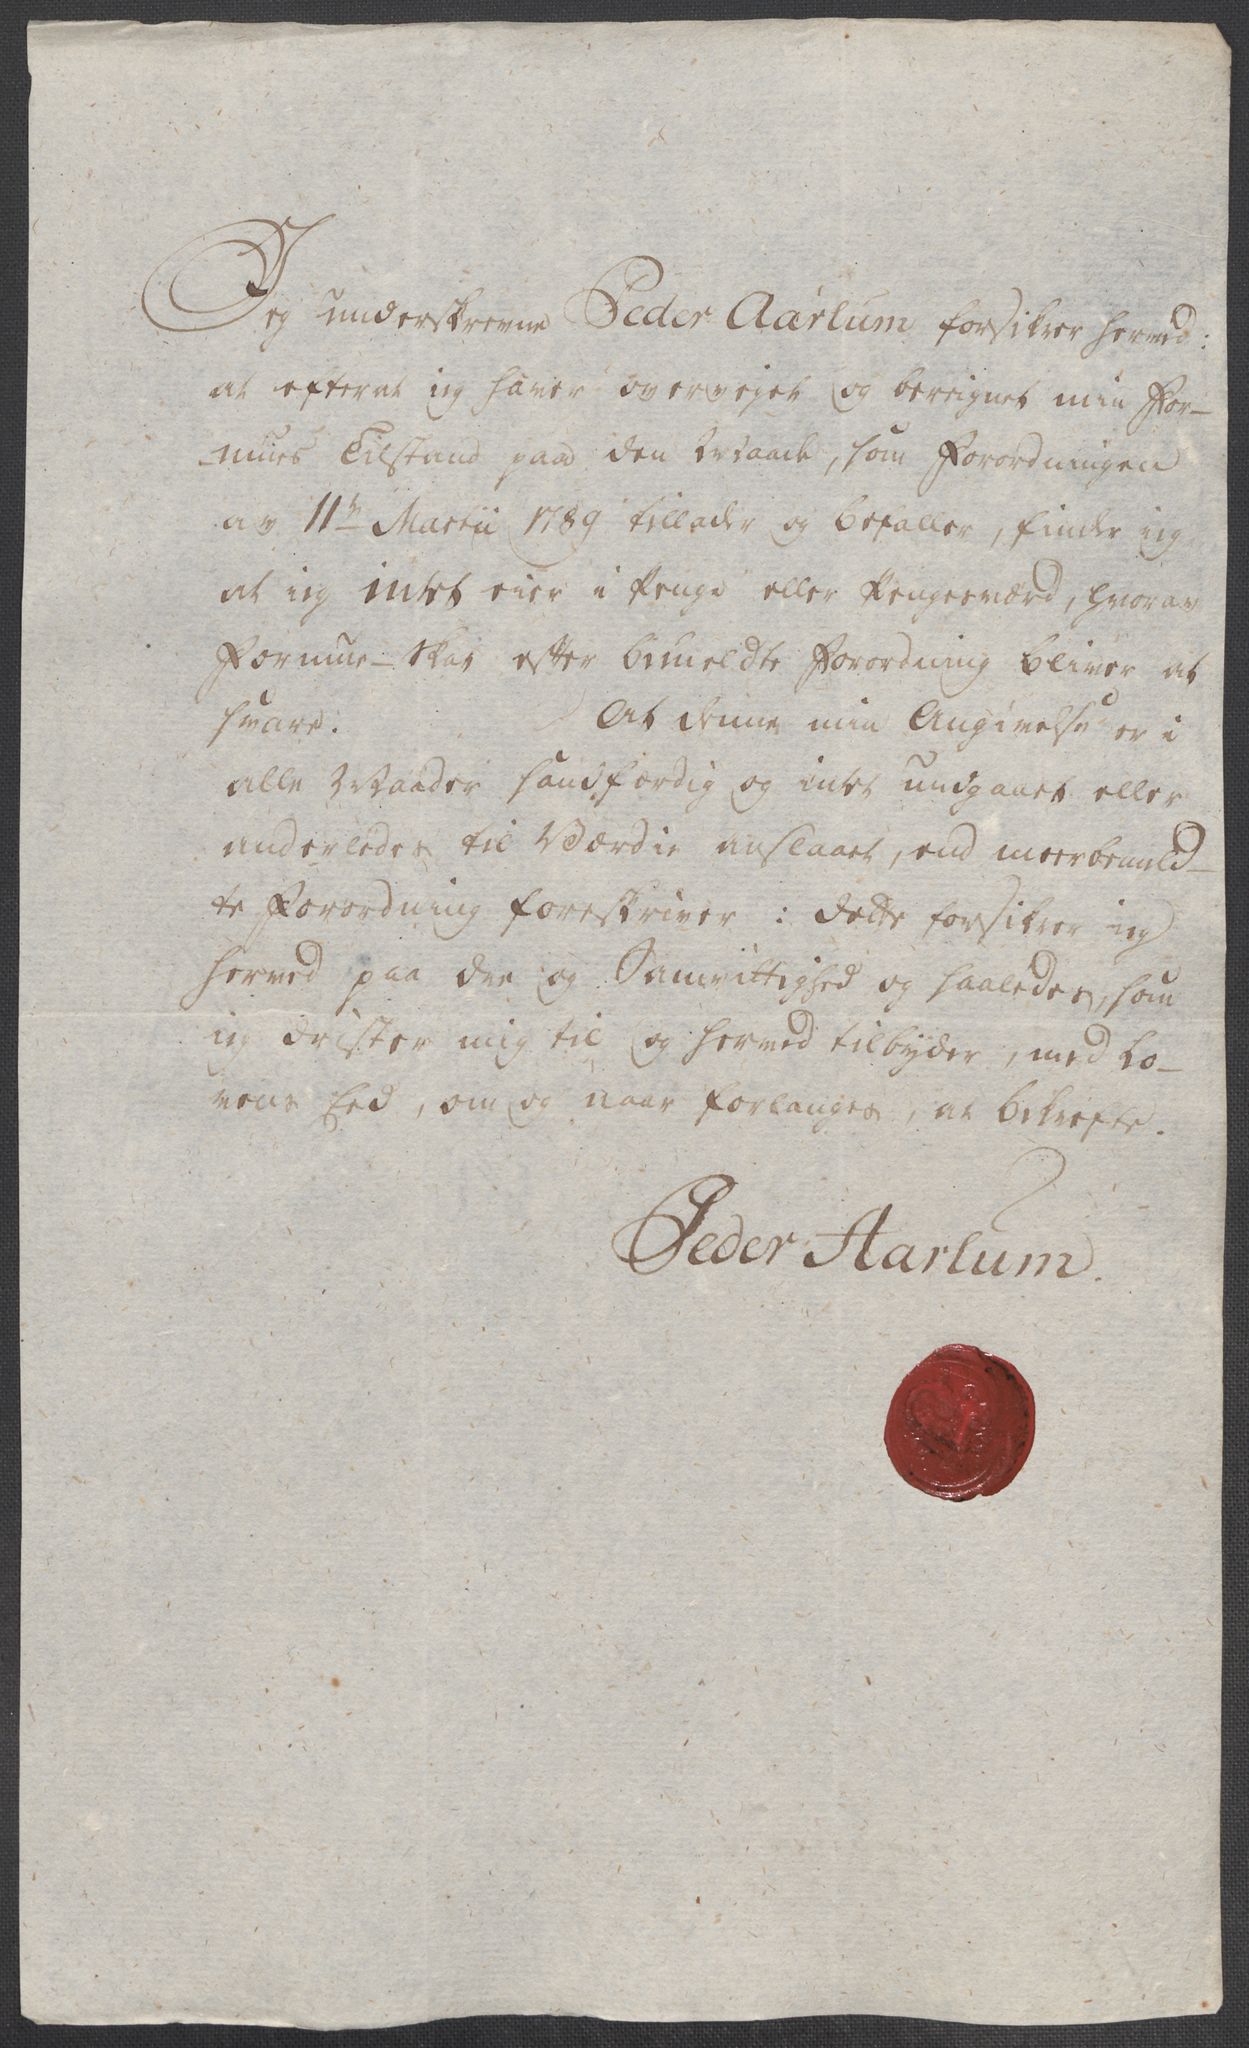 Jeg underskrevne Peder Aarlum forsikrer herved:
at efterat ieg haver overvejet og bereignet min For-
mues Tilstand paa den Maade, som Forordningen
av 11te Martii 1789 tillader og befaller, finder ieg
at ieg intet eier i Penge eller Pengesværd, hvorav
Formue-Skat efter bemeldte Forordning bliver at
svare. At denne min Angivelse er i
alle Maader sandfærdig og intet undgaaet eller
anderledes til Værdie anslaaet, end meerbemeld-
te Forordning foreskriver: dette forsikrer ieg
herved paa Ære og Samvittighed og saaledes, som
ieg drister mig til og herved tilbyder, med Lo-
vens Eed, om og naar forlanges, at bekræfte.
Peder Aarlum.